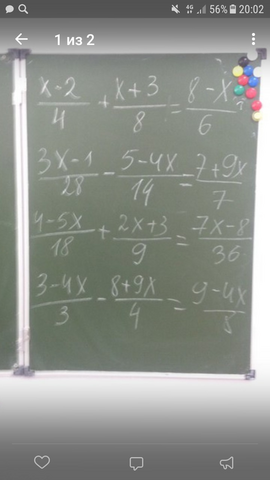 4G 56% 20:02
1 из 2
x-2/4 + x+3/8 = 8-x/6
3x-1/28 - 5-4x/14 = 7+9x/7
4-5x/18 + 2x+3/9 = 7x-8/36
3-4x/3 - 8+9x/4 = 9-4x/